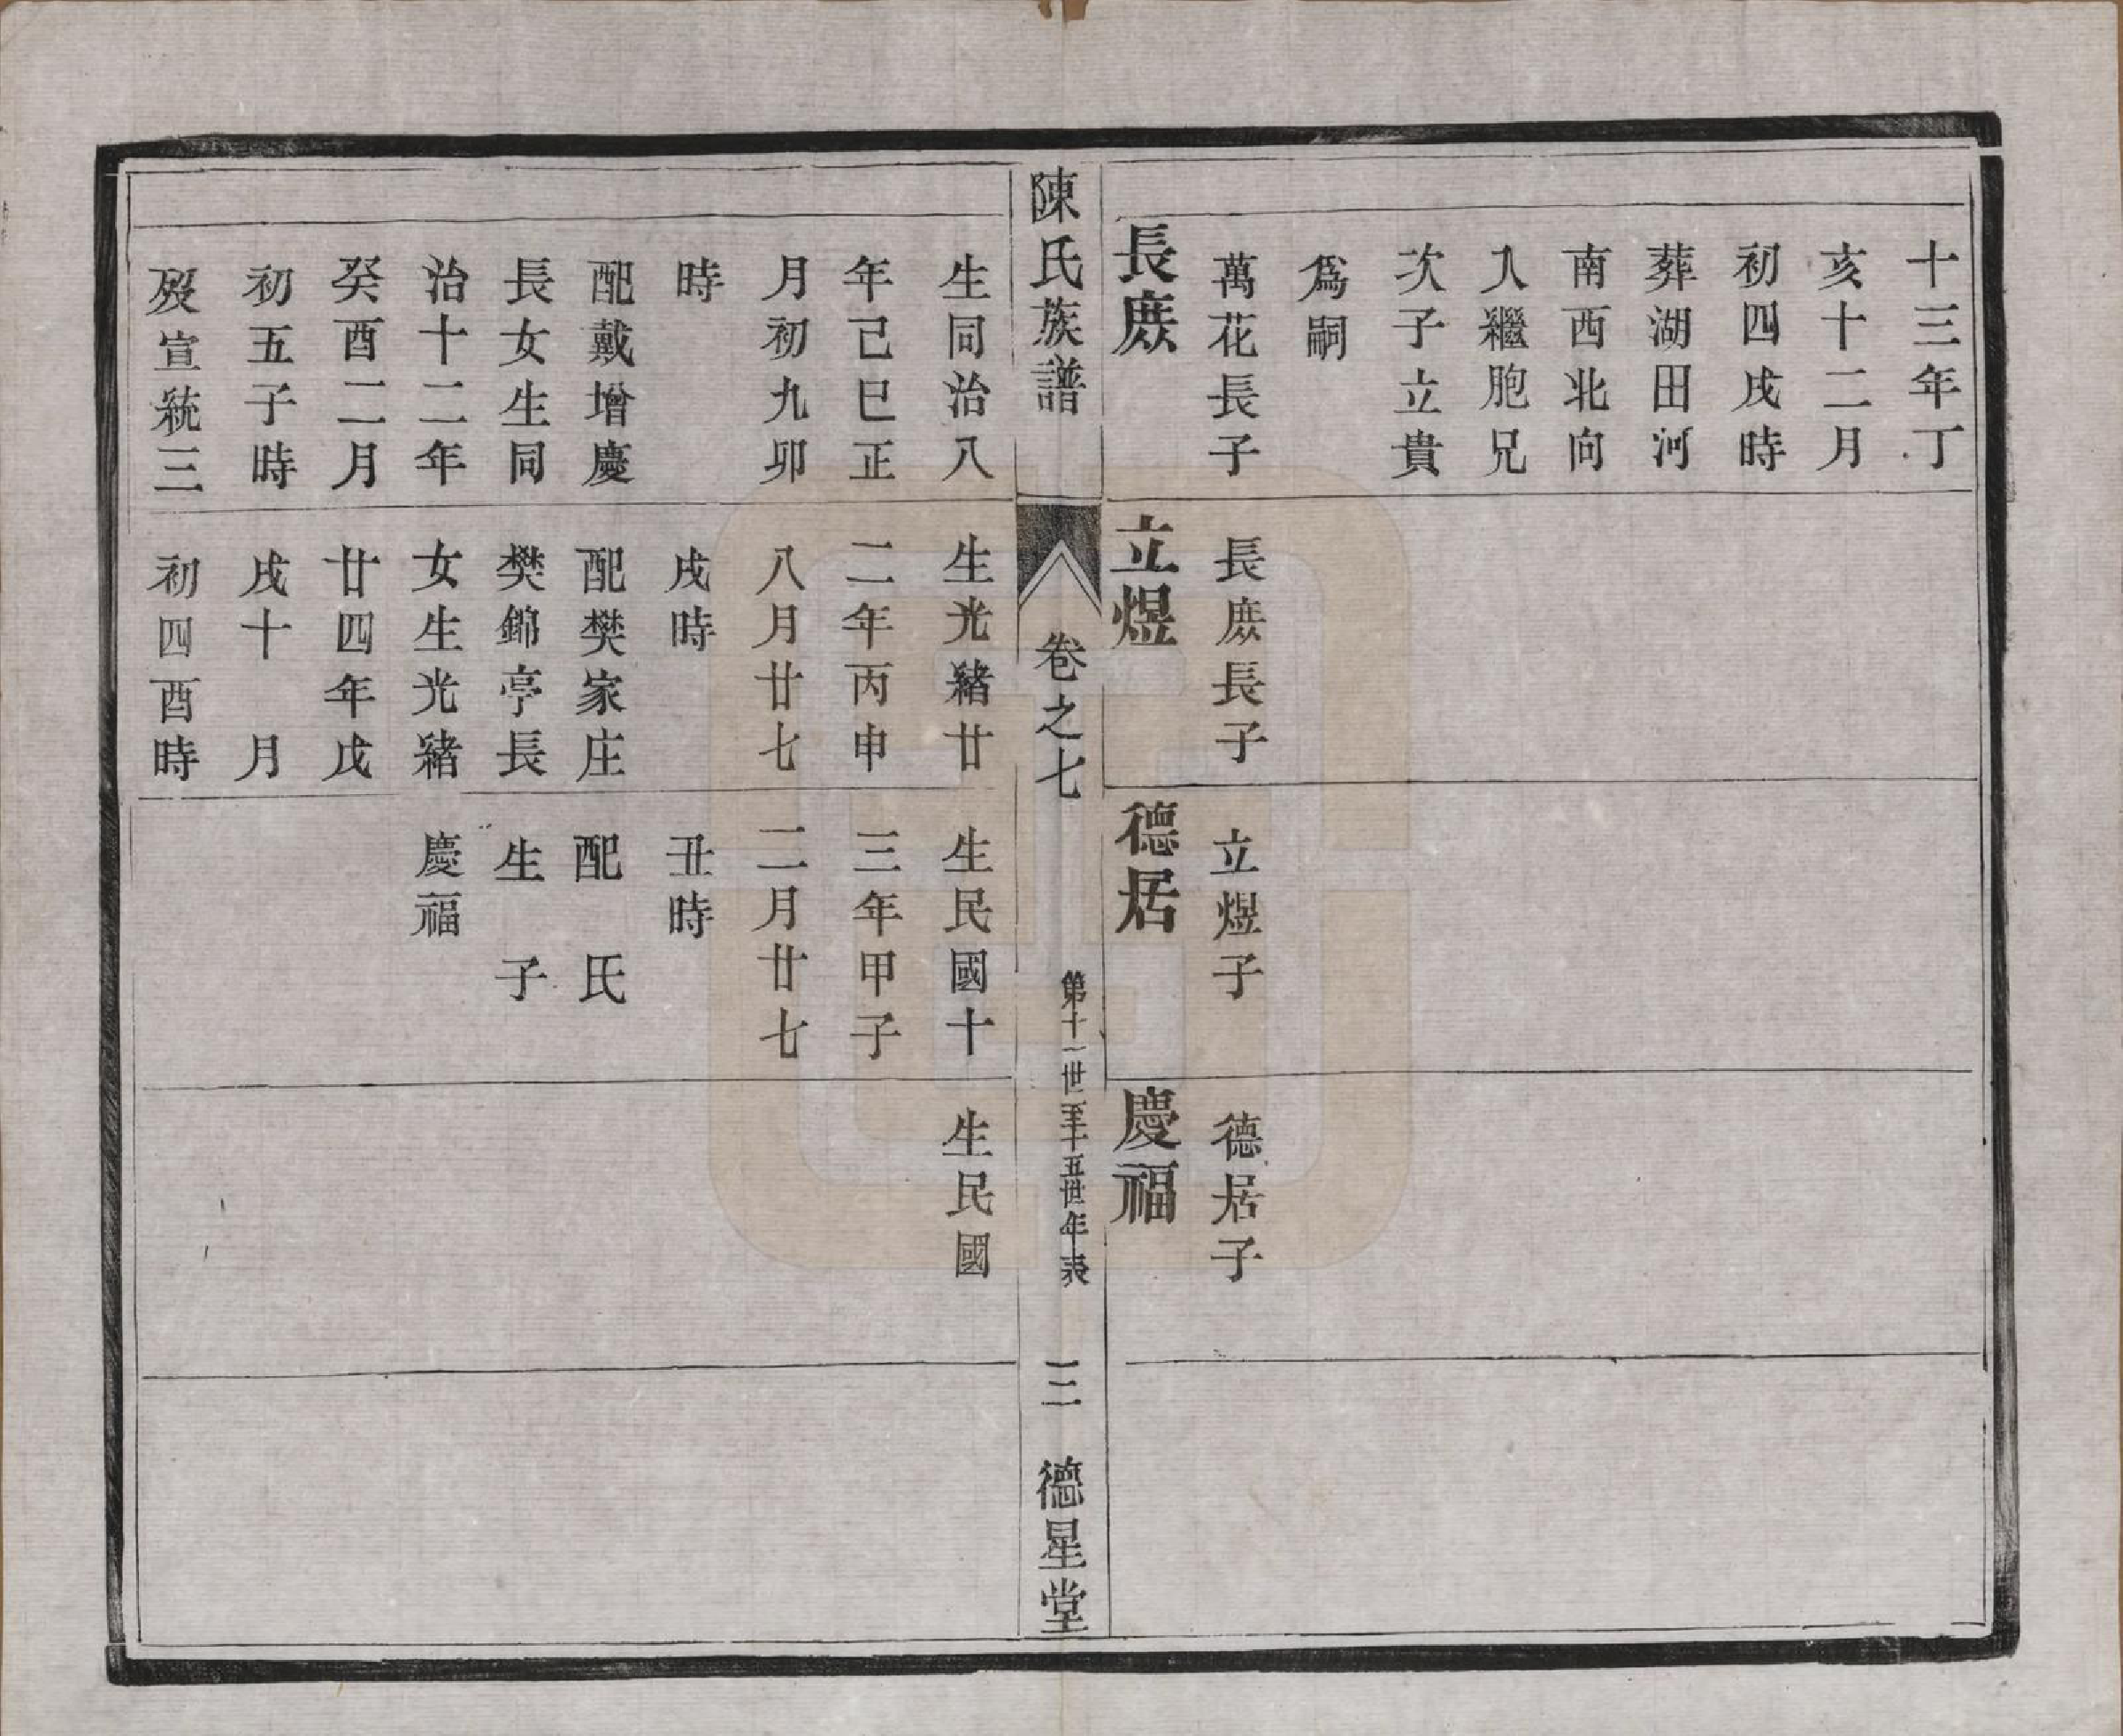 十三年丁
亥十二月
初四戌時
葬湖田河
南西北向
入繼胞兄
次子立貴
爲嗣
萬花長子
長庶
長庶長子
立煜
立煜子
德居
德居子
慶福
陳氏族譜
卷之七
第十一世至十五世年表
三
德星堂
生同治八
年己巳正
月初九卯
時
配戴增慶
長女生同
治十二年
癸酉二月
初五子時
歿宣統三
生光緒廿
二年丙申
八月廿七
戌時
配樊家庄
樊錦亭長
女生光緒
廿四年戊
戌十月
初四酉時
生民國十
三年甲子
二月廿七
丑時
配氏
生子
慶福
生民國